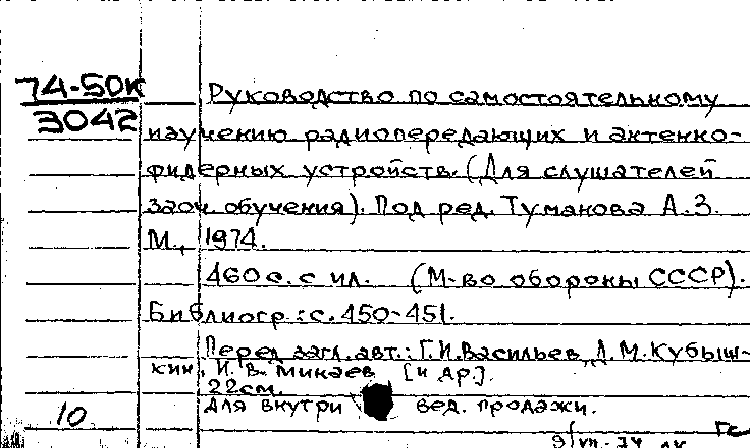 74-50К
3042
Руководство по самостоятельному
изучению радиопередающих и антенно-
фидерных устройств. (Для слушателей
заоч. обучения). Под ред. Туманова А.З.
М., 1974.
460 с. с ил. (М-во обороны СССР).
Библиогр.: с. 450-451.
Перед загл. авт.: Г.И.Васильев, А.М.Кубыш-
кин, И.В. Минаев [и др.].
22см.
10 Для внутри вед. продажи.